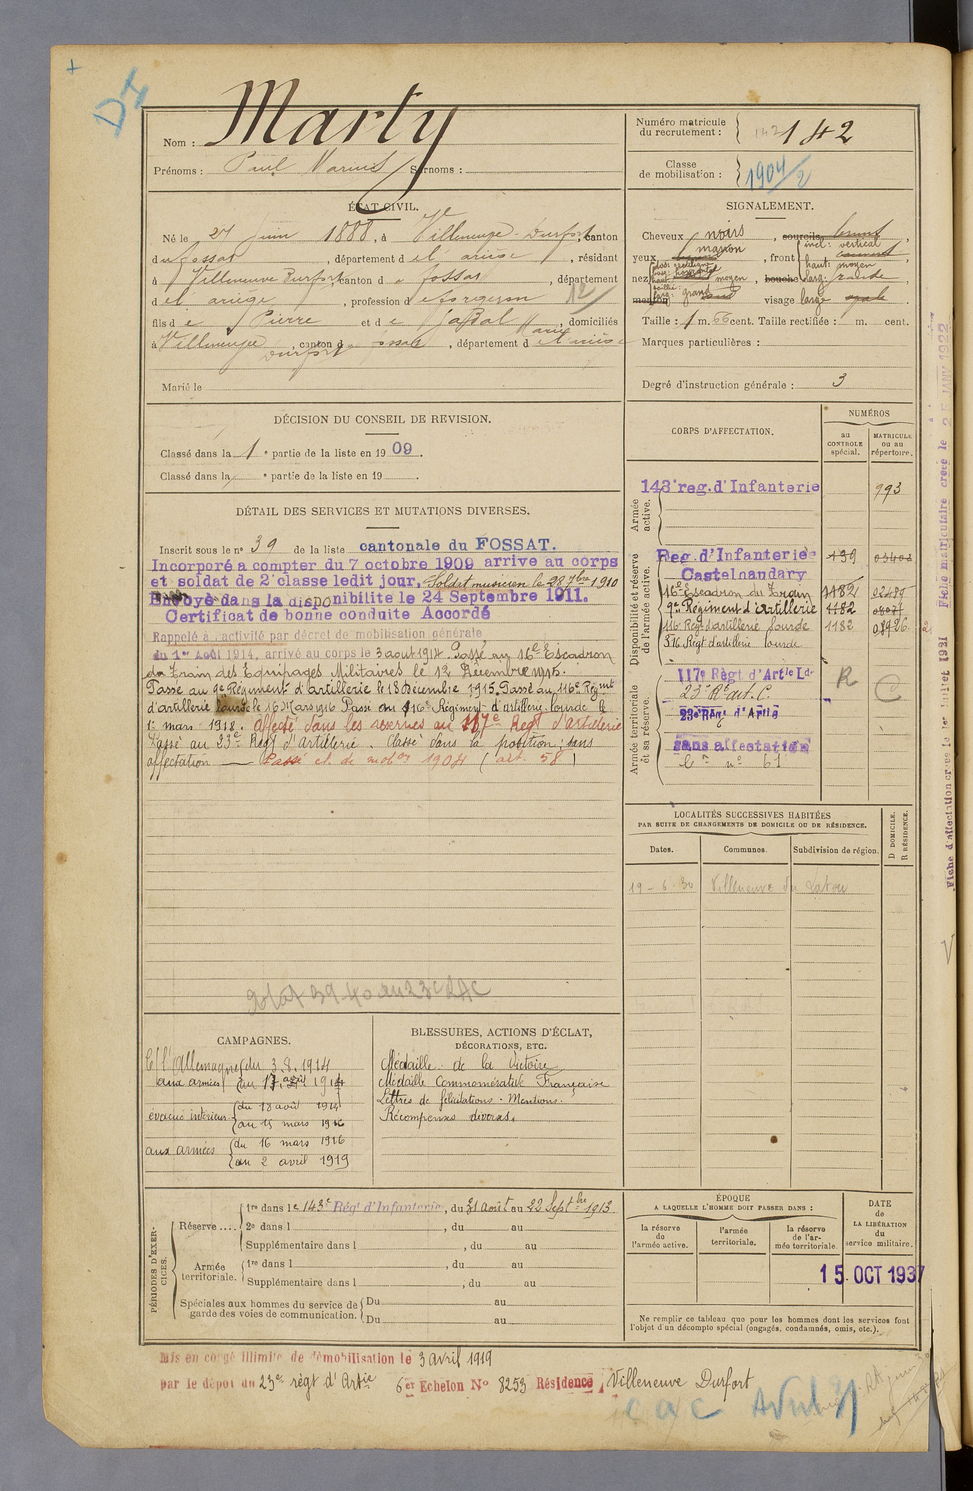 +
Nom : Marty
Prénoms : Paul Marius Surnoms :
ÉTAT CIVIL.
Né le 27 juin 1888, à Villeneuve-Durfort, canton
du Fossat, département d el Ariège, résidant
à Villeneuve Durfort, canton d Fossat, département
d el ariège, profession d e forgeron
fils d e Pierre et d e Marie, domiciliés
à Villeneuve Durfort, canton d Fossat, département d el Ariège
Marié le
Numéro matricule du recrutement : 142 142
Classe de mobilisation : 1904/2
SIGNALEMENT.
Cheveux noirs, sourcils bruns,
yeux marron, front incl: vertical
haut: moyen
nez moyen, bouche larg:
menton grand visage large ovale
Taille : 1 m. 66 cent. Taille rectifiée : m. cent.
Marques particulières :
Degré d'instruction générale : 3
DÉCISION DU CONSEIL DE REVISION.
Classé dans la 1 e partie de la liste en 1909.
Classé dans la e partie de la liste en 19 .
DÉTAIL DES SERVICES ET MUTATIONS DIVERSES.
Inscrit sous le n° 39 de la liste cantonale du FOSSAT.
Incorporé a compter du 7 octobre 1909 arrive au corps
et soldat de 2e classe ledit jour, Soldat musicien le 22 7bre 1910
Envoyé dans la disponibilite le 24 Septembre 1911.
Certificat de bonne conduite Accordé
Rappelé à l'activité par décret de mobilisation générale
du 1er Août 1914, arrivé au corps le 3 aout 1914. Passé au 16e Escadron
du Train des Equipages Militaires le 12 Décembre 1915.
Passé au 9e Régiment d'artillerie le 18 Décembre 1915. Passé au 116e Régimt
d'artillerie lourde le 16 Mars 1916 Passé au 316e Régiment d'artillerie lourde le
1er mars 1918. affecté dans les réserves au 117e Regt d'artillerie
Passé au 23e Regt d'Artillerie. Classé dans la position : sans
affectation — Passé cl. de mobon 1904 (art. 58)
CORPS D'AFFECTATION.
NUMÉROS
au CONTROLE spécial.
MATRICULE ou au répertoire.
Armée active.
143e reg. d'Infanterie 993
Disponibilité et réserve de l'armée active.
Reg. d'Infanterie 139
Castelnaudary
16e Escadron du Train 1182
9e Régiment d'Artillerie 1182
116e Régt d'artillerie lourde 1182
316 Régt d'artillerie lourde
Armée territoriale et sa réserve.
117e Règt d'Artie Lde R C
23e R. art. C.
23e Règt d'Artie
sans affectation
n° 61
LOCALITÉS SUCCESSIVES HABITÉES
PAR SUITE DE CHANGEMENTS DE DOMICILE OU DE RÉSIDENCE.
Dates. Communes. Subdivision de région. D DOMICILE. R RÉSIDENCE.
19-6-30 Villeneuve du Latou
CAMPAGNES.
C/ l'Allemagne du 3.8.1914
aux armées au 17 1914
évacué intérieur du 18 août 1914
au 15 mars 1916
aux armées du 16 mars 1916
au 2 avril 1919
BLESSURES, ACTIONS D'ÉCLAT,
DÉCORATIONS, ETC.
Médaille de la Victoire
Médaille Commémorative Française
Lettres de félicitations - Mentions.
Récompenses diverses.
PÉRIODES D'EXERCICES.
Réserve .... 1re dans le 143e Régt d'Infanterie, du 31 août au 22 Septbre 1913
2e dans l , du au
Supplémentaire dans l , du au
Armée territoriale. 1re dans l , du au
Supplémentaire dans l , du au
Spéciales aux hommes du service de garde des voies de communication. Du au
Du au
ÉPOQUE
A LAQUELLE L'HOMME DOIT PASSER DANS :
la réserve de l'armée active.
l'armée territoriale.
la réserve de l'armée territoriale.
DATE de LA LIBÉRATION du service militaire.
15 OCT 1937
Ne remplir ce tableau que pour les hommes dont les services font
l'objet d'un décompte spécial (engagés, condamnés, omis, etc.).
Mis en congé illimité de démobilisation le 3 avril 1919
par le dépot du 23e régt d'Artie 6e Echelon N° 8253 Résidence, Villeneuve Durfort
Fiche matriculaire créée le 25 JANV 1922
Fiche d'affectation créée le 1er Juillet 1921